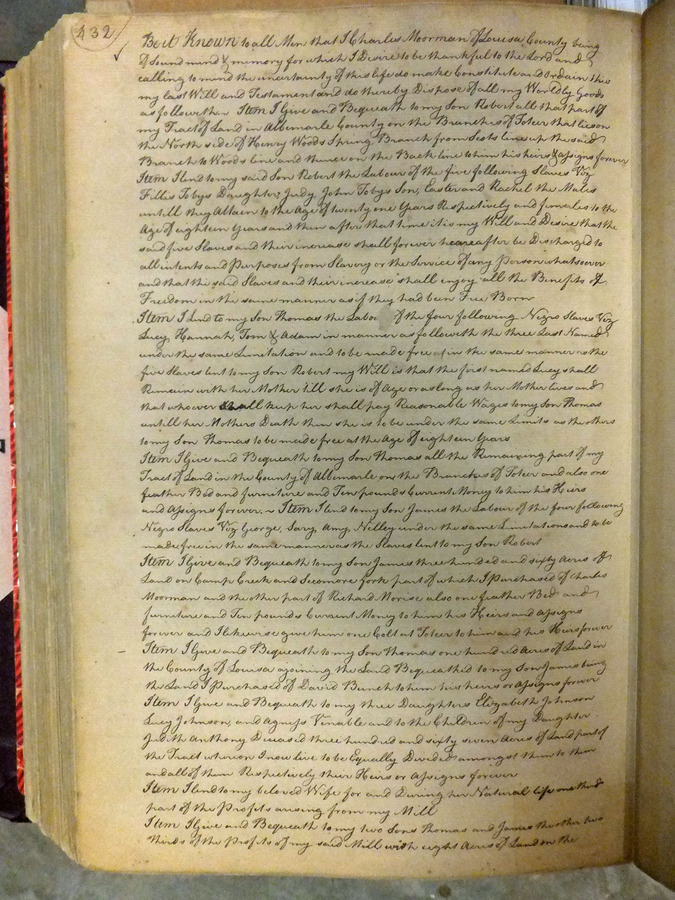 432
Be it Known to all Men that I Charles Moorman of Louisa County being
of sound mind & memory for which I Desire to be thankful to the Lord and
calling to mind the uncertainty of this life do make Constitute and Ordain this
my last Will and Testament and do thereby Dispose of all my Worldly Goods
as followeth Item I Give and Bequeath to my Son Robert all that part of
my Tract of Land in Albemarle County on the Branches of Toteer that lies on
the North side of Henry Woods Spring Branch from Scots line up the said
Branch to Woods line and thence on the Back line to him his heirs & assigns forever
Item I lend to my said Son Robert the Labour of the five following Slaves Viz
Fillis Tobys Daughter Judy John Tobys Son, Easter and Rachel the Males
untill they Attain to the Age of twenty one Years Respectively and females to the
Age of eighteen Years and then after that time it is my Will and Desire that the
said five Slaves and their increase shall forever hereafter be Discharged to
all intents and Purposes from Slavery or the Service of any Person whatsoever
and that the said Slaves and their increase shall enjoy all the Benefits of
Freedom in the same manner as if they had been Free Born
Item I lend to my Son Thomas the Labo of the four following Negro Slaves Viz
Lucy, Hannah, Tom & Adam in manner as followeth the three Last Named
under the same Limitation and to be made free in the same manner as the
five Slaves lent to my Son Robert my Will is that the first named Lucy shall
Remain with her Mother till she is of Age or as long as her Mother lives and
that whoever shall keep her shall pay Reasonable Wages to my Son Thomas
untill her Mothers Death then she is to be under the same Limits as the others
to my Son Thomas to be made free at the Age of eighteen Years
Item I Give and Bequeath to my Son Thomas all the Remaining part of my
Tract of Land in the County of Albemarle on the Branches of Toteer and also one
feather Bed and furniture and Ten pounds Current Money to him his Heirs
and Assigns forever, ~ Item I lend to my Son James the Labour of the four following
Negro Slaves Viz George, Sary, Amy, Nelley under the same Limitations and to be
made free in the same manner as the Slaves lent to my Son Robert
Item I Give and Bequeath to my Son James three hundred and sixty Acres of
Land on Camp Creek and Secomore fork part of which I Purchased of Charles
Moorman and the other part of Richard Morise also one feather Bed and
furniture and Ten pounds Current Money to him his Heirs and Assigns
forever and I likewise give him one Colt at Toteer to him and his Heirs forever
Item I Give and Bequeath to my Son Thomas one hundred Acres of Land in
the County of Louisa ajoining the Land Bequeathed to my Son James being
the Land I purchased of David Bunch to him his heirs or Assigns forever
Item I Give and Bequeath to my three Daughters Elizabeth Johnson
Lucy Johnson, and Agness Venable and to the Children of my Daughter
Judith Anthony Diceased three hundred and sixty seven Acres of Land part of
the Tract whereon I now live to be Equally Divided amongst them to them
and all of them Respectively their Heirs or Assigns forever
Item I lend to my beloved Wife for and During her Natural life one third
part of the Profits arising from my Mill
Item I Give and Bequeath to my two Sons Thomas and James the other two
thirds of the Profits of my said Mill with eight Acres of Land on the